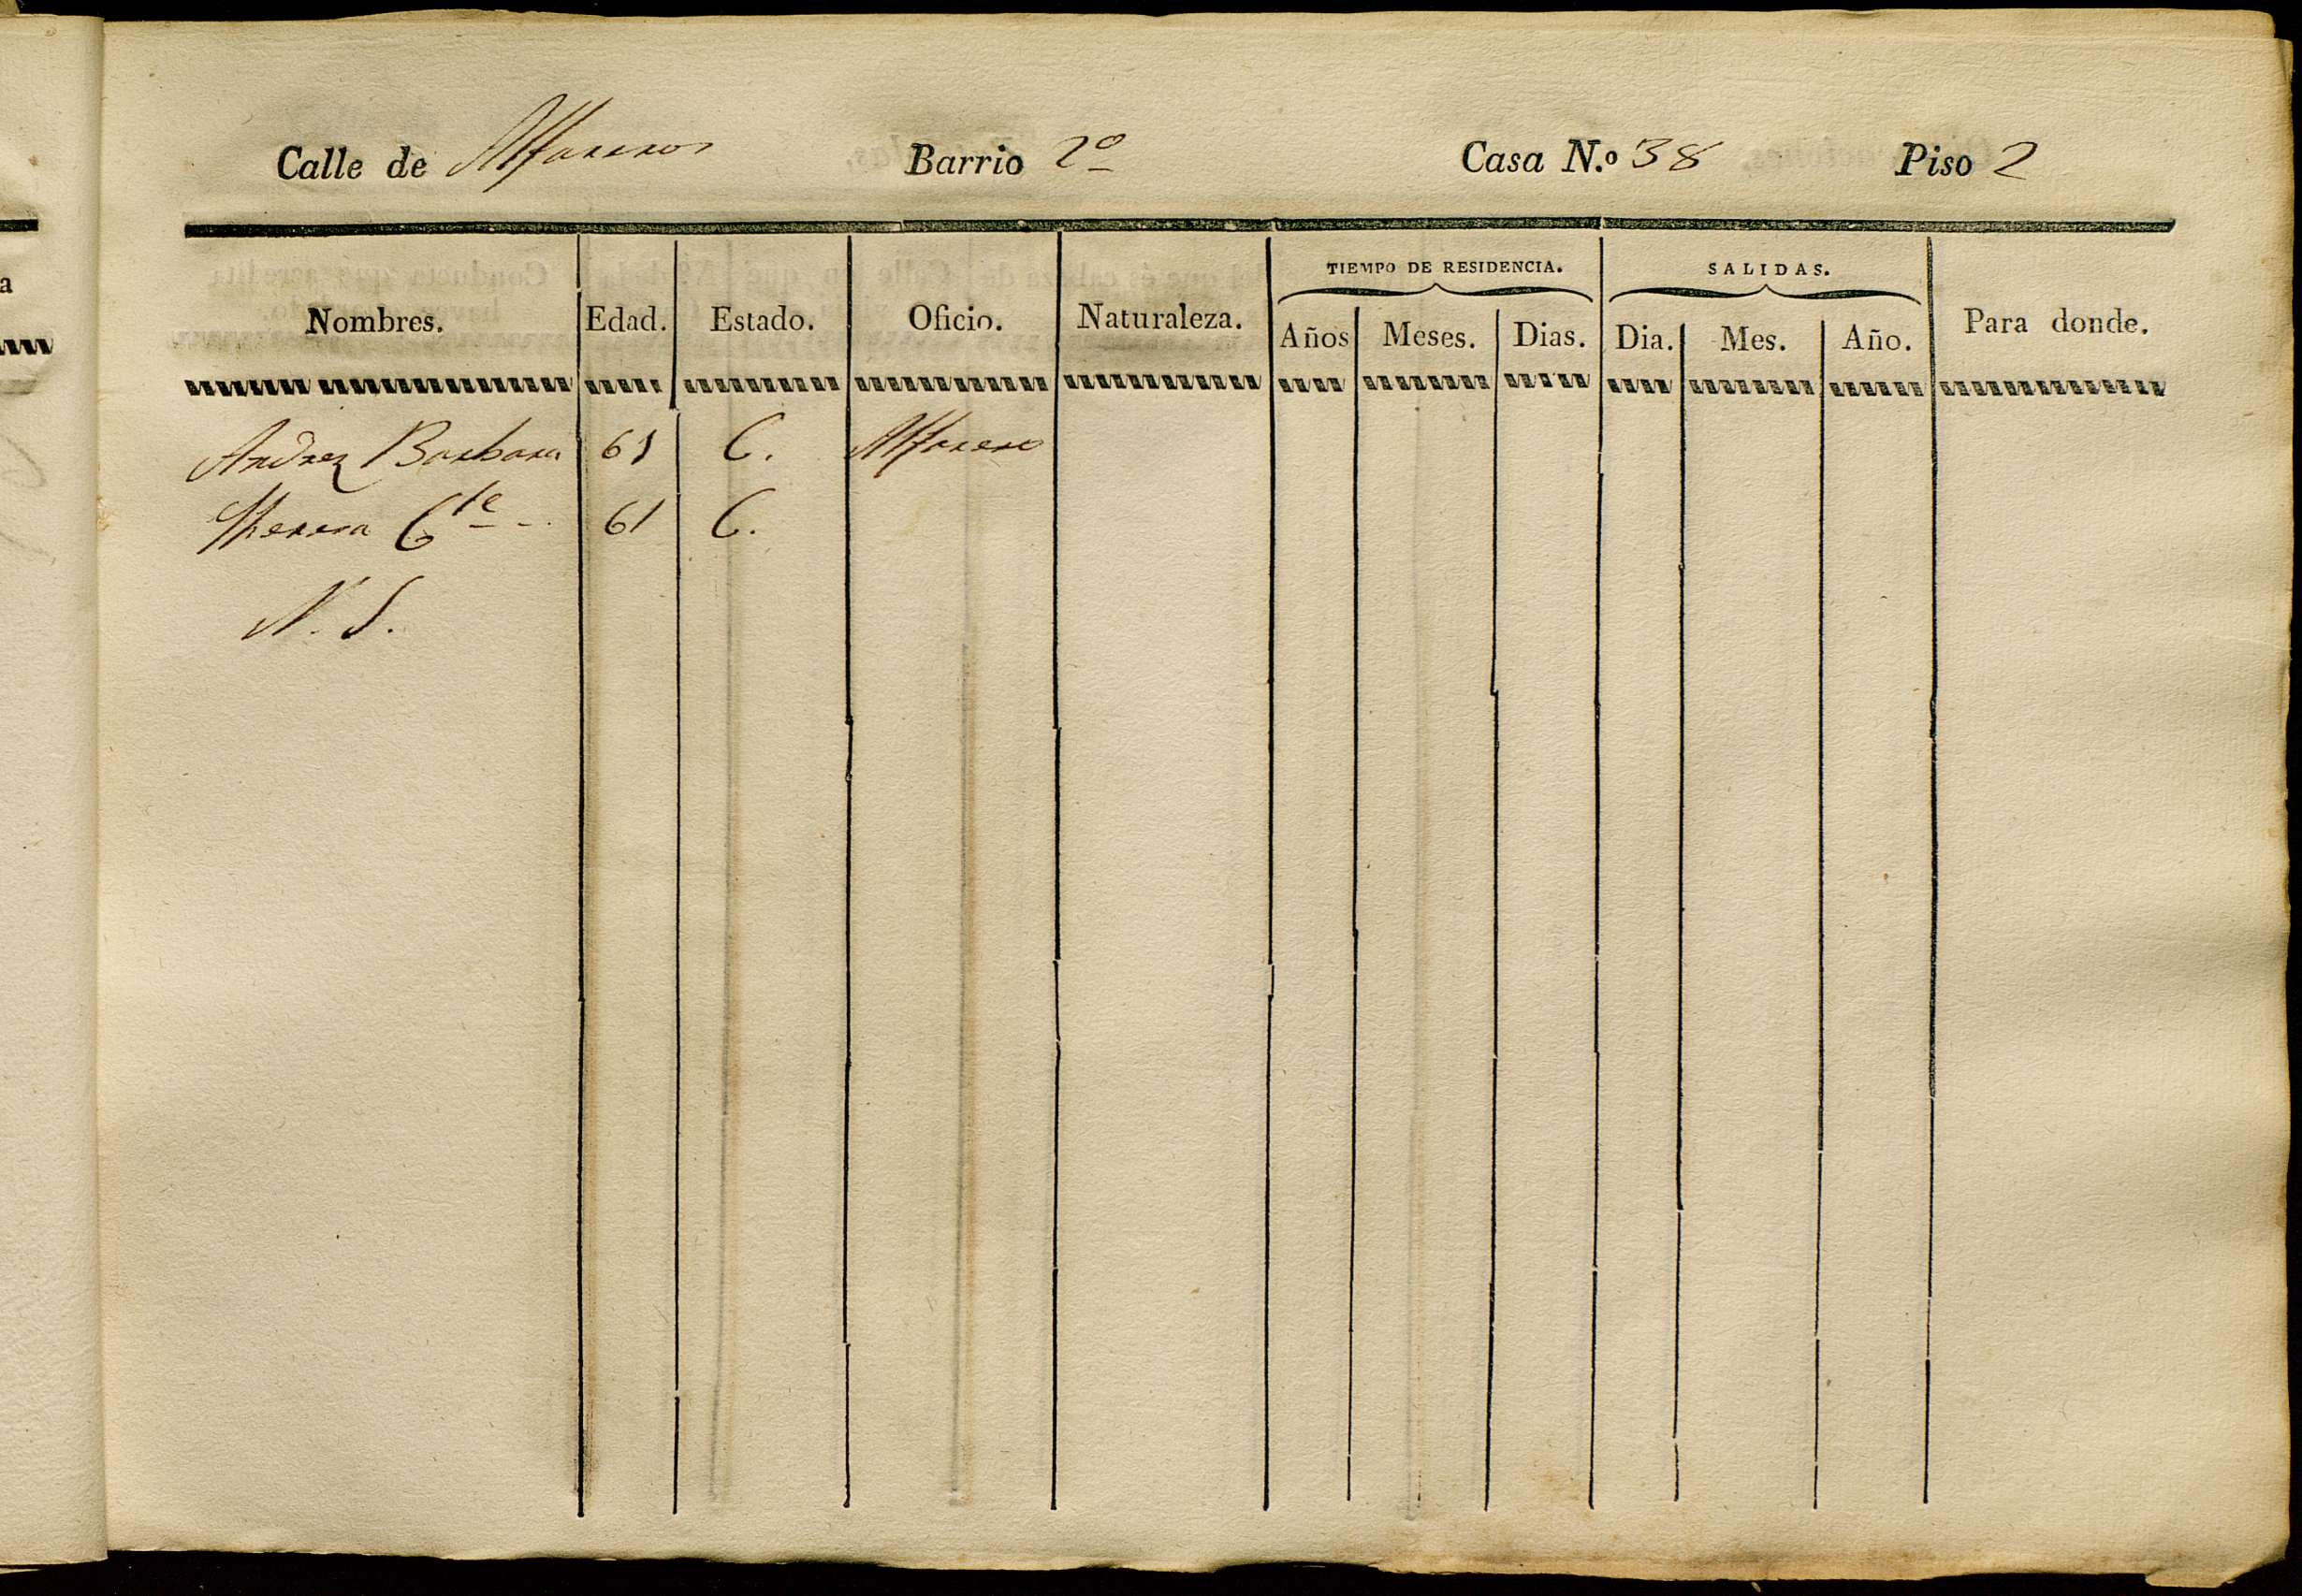 Calle de Alfareros Barrio 2º Casa N.º 38 Piso 2
TIEMPO DE RESIDENCIA. SALIDAS.
Nombres. Edad. Estado. Oficio. Naturaleza. Años Meses. Dias. Dia. Mes. Año. Para donde.
Andrez Barbara 61 C. Alfarero
Theresa Cte 61 C.
N. S.
a